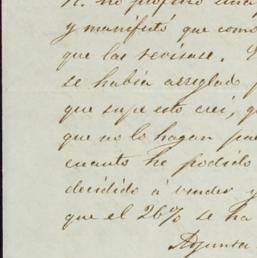 no
y manifestó que como
que las revisase.
se había arreglado
que supe esto creí, que
que no lo hagan par
cuanto he podido
decidido á vender y
que el 26% se ha
Adjunta